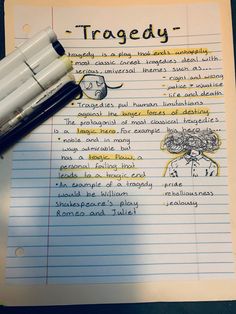 - Tragedy -
Tragedy is a play that ends unhappily.
• most classic Greet tragedies deal with
serious, universal themes such as...
• right and wrong
• justice + injustice
• life and death
• Tragedies put human limitations
against the larger forces of destiny.
The protagonist of most classical tragedies
is a tragic hero. For example this hero is...
• noble and in many
ways admirable but
has a tragic flaw, a
personal failing that
leads to a tragic end
• An example of a tragedy
would be William
Shakespeare's play
Romeo and Juliet
• pride
• rebelliousness
• jealousy